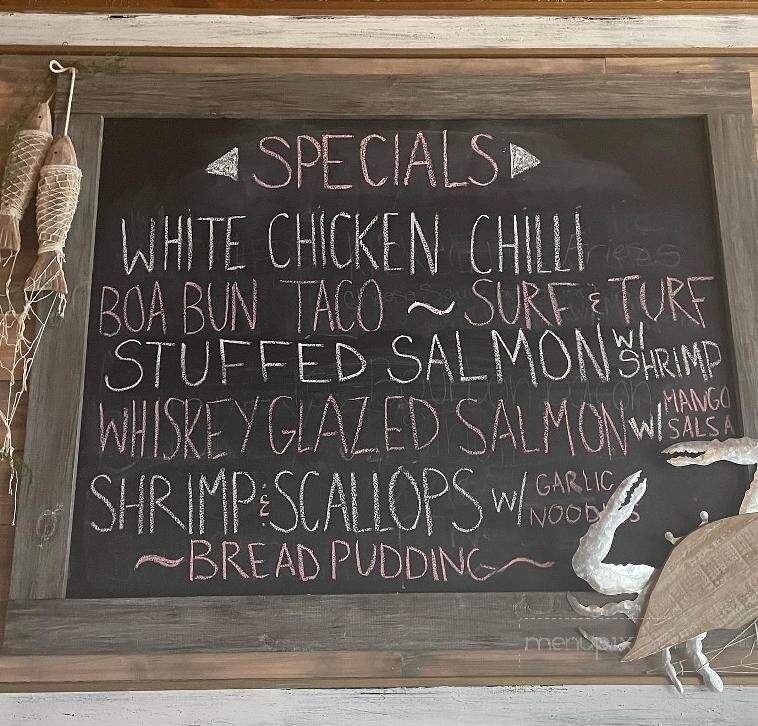 SPECIALS
WHITE CHICKEN CHILLI
BOA BUN TACO ~ SURF & TURF
STUFFED SALMON W/ SHRIMP
WHISKEY GLAZED SALMON W/ MANGO SALSA
SHRIMP & SCALLOPS W/ GARLIC NOODLES
~BREAD PUDDING~
menupix